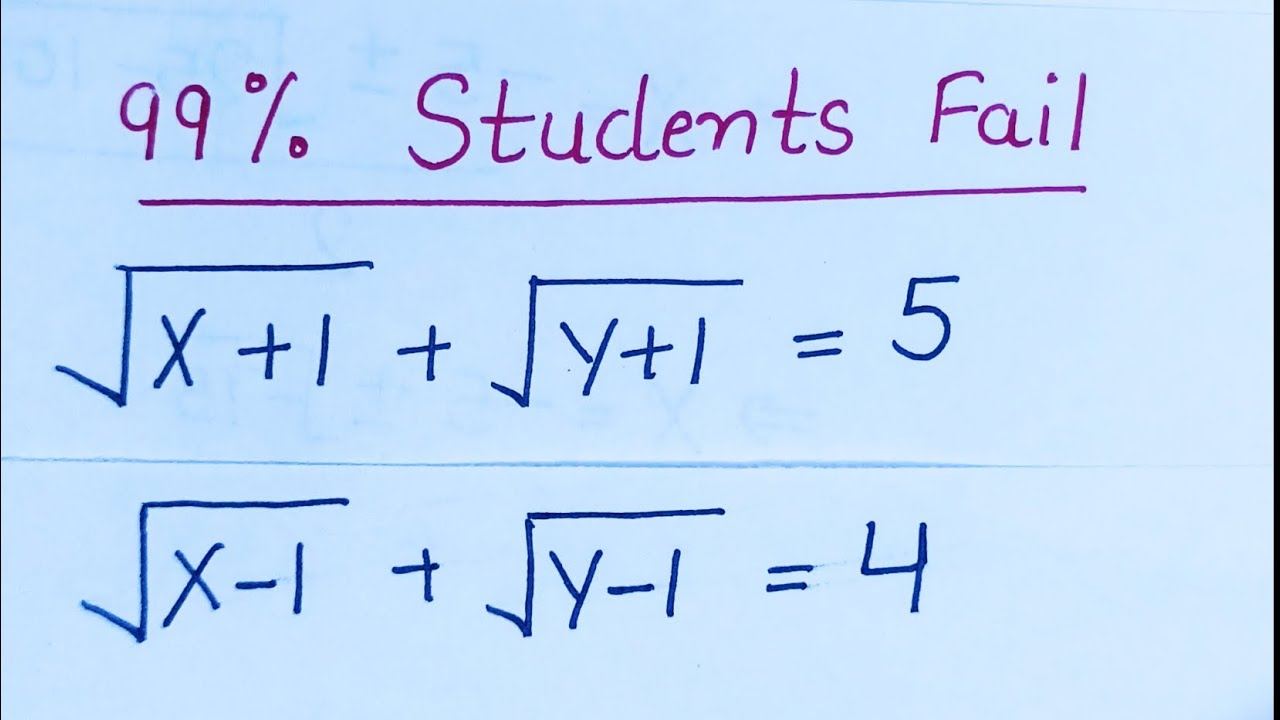 99% Students Fail
√(x+1) + √(y+1) = 5
√(x-1) + √(y-1) = 4